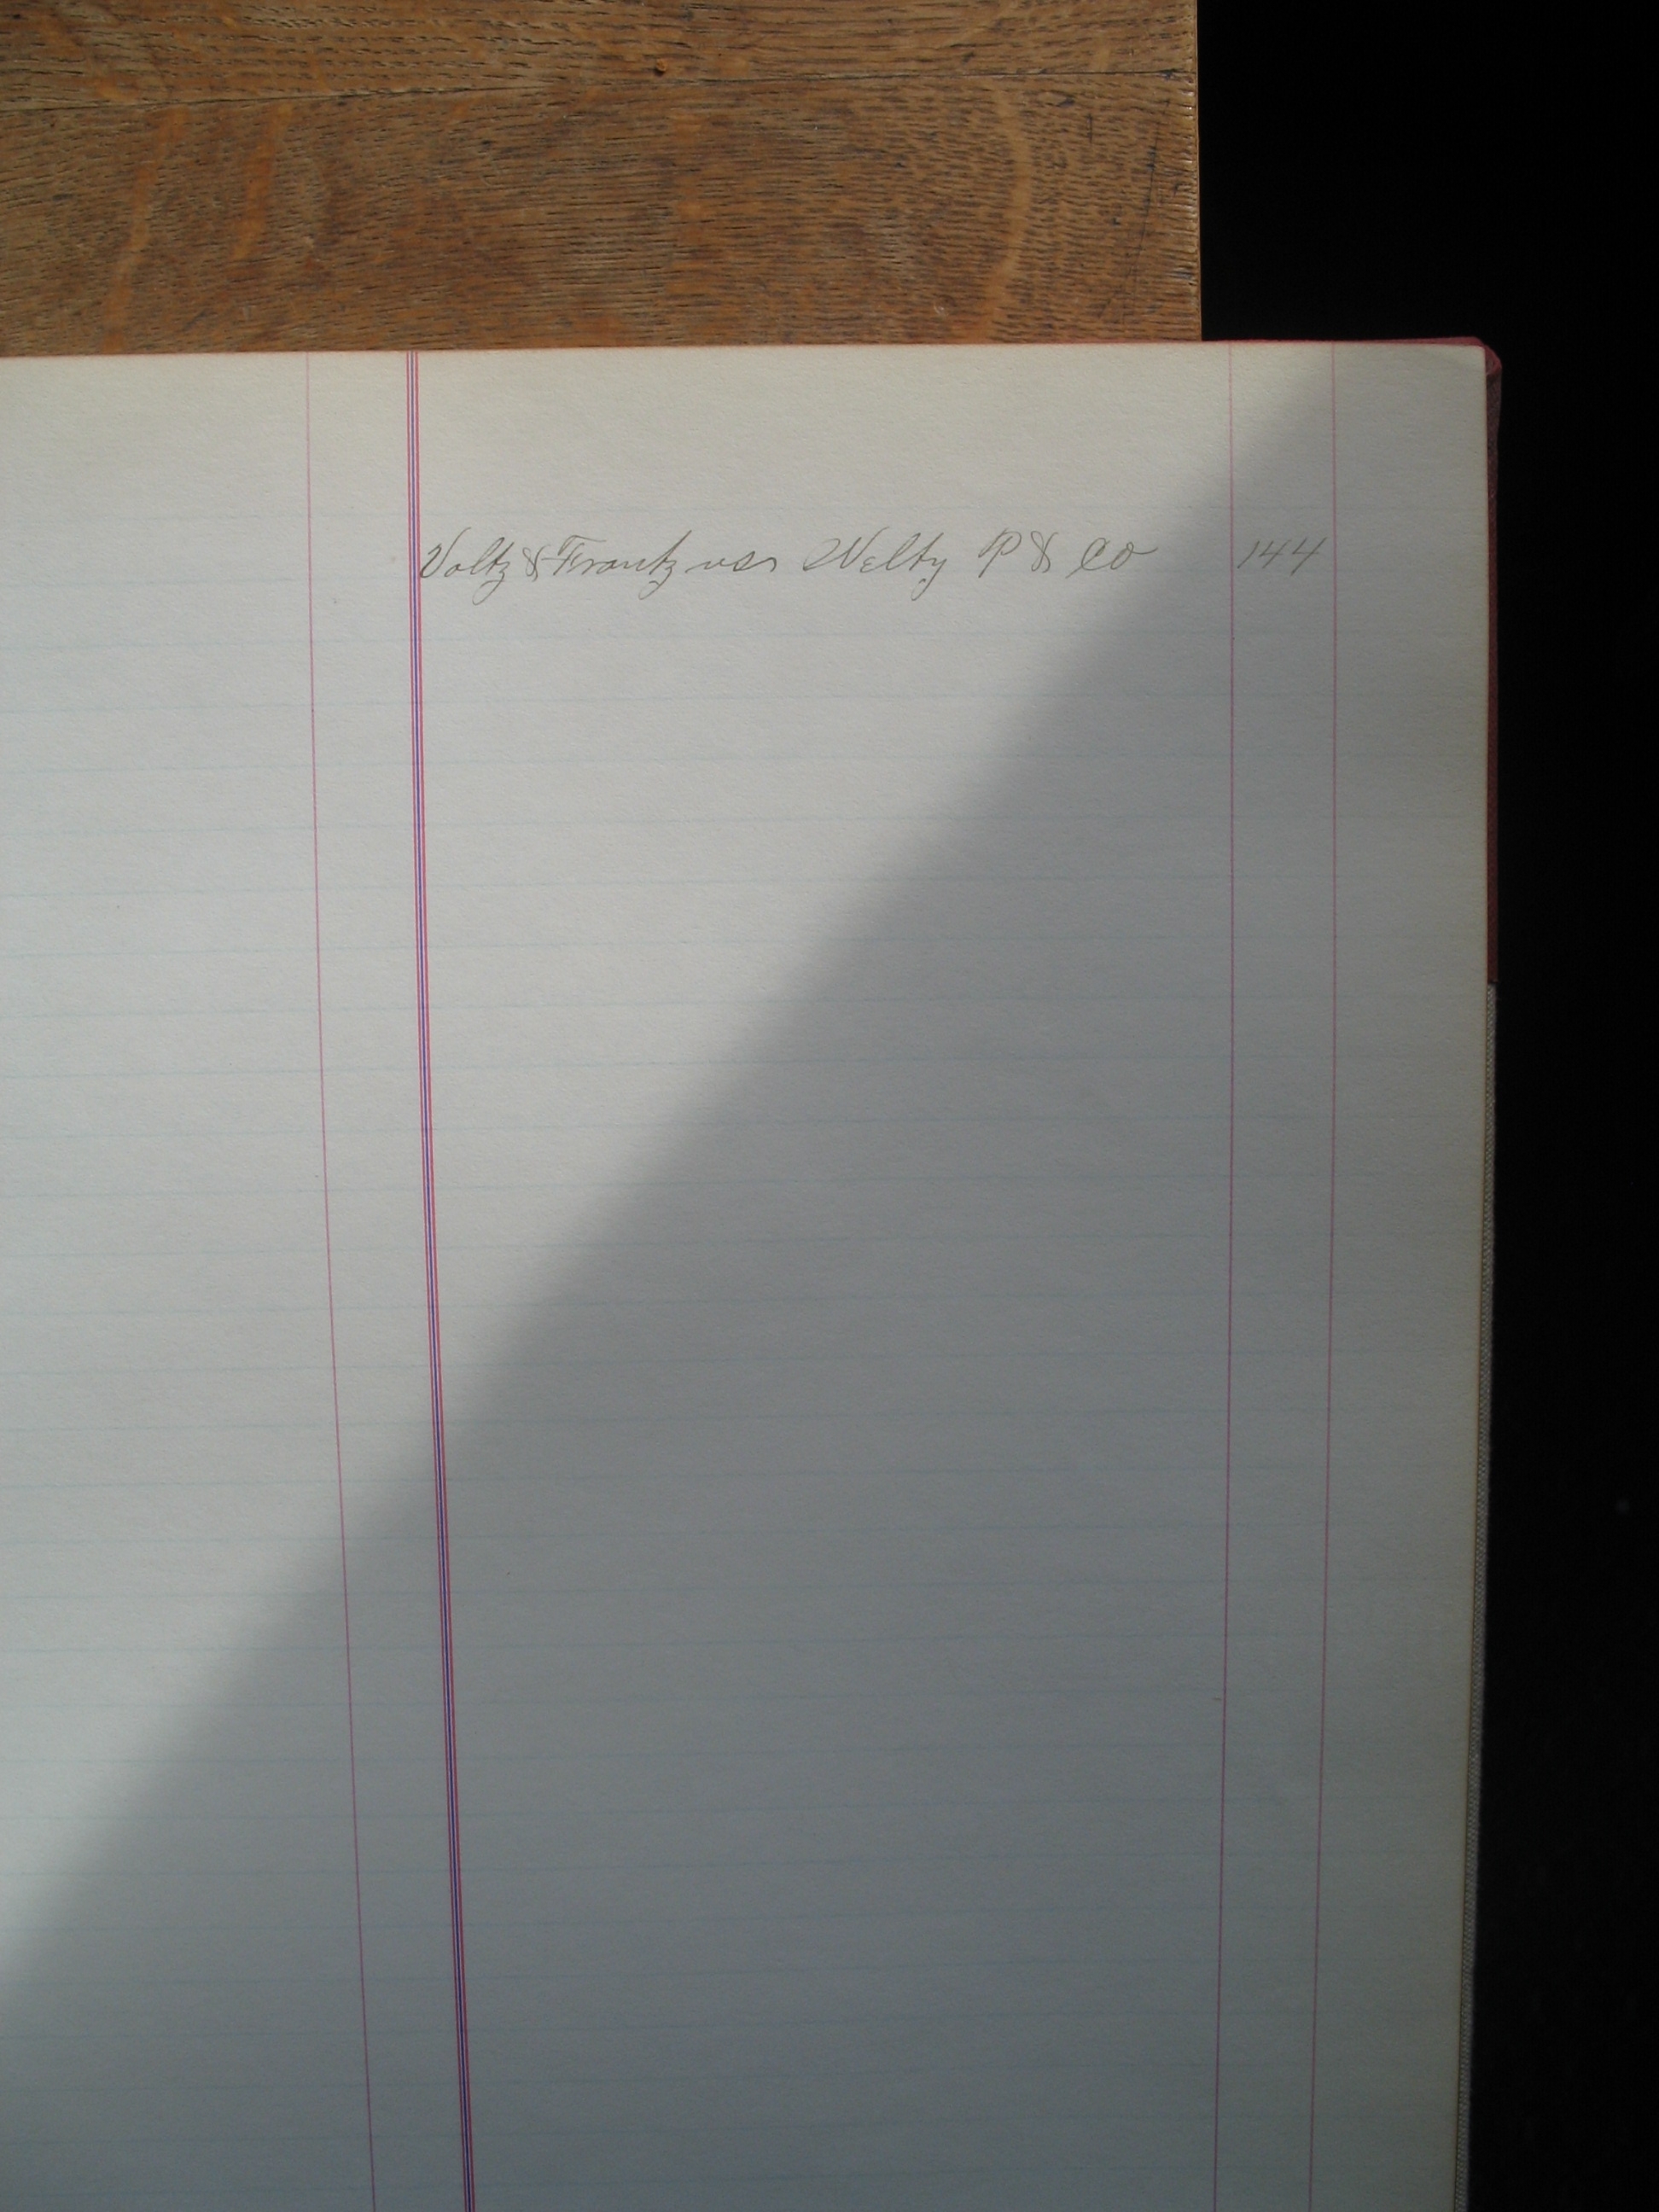 Voltz & Frantz vs Welty P & Co 144